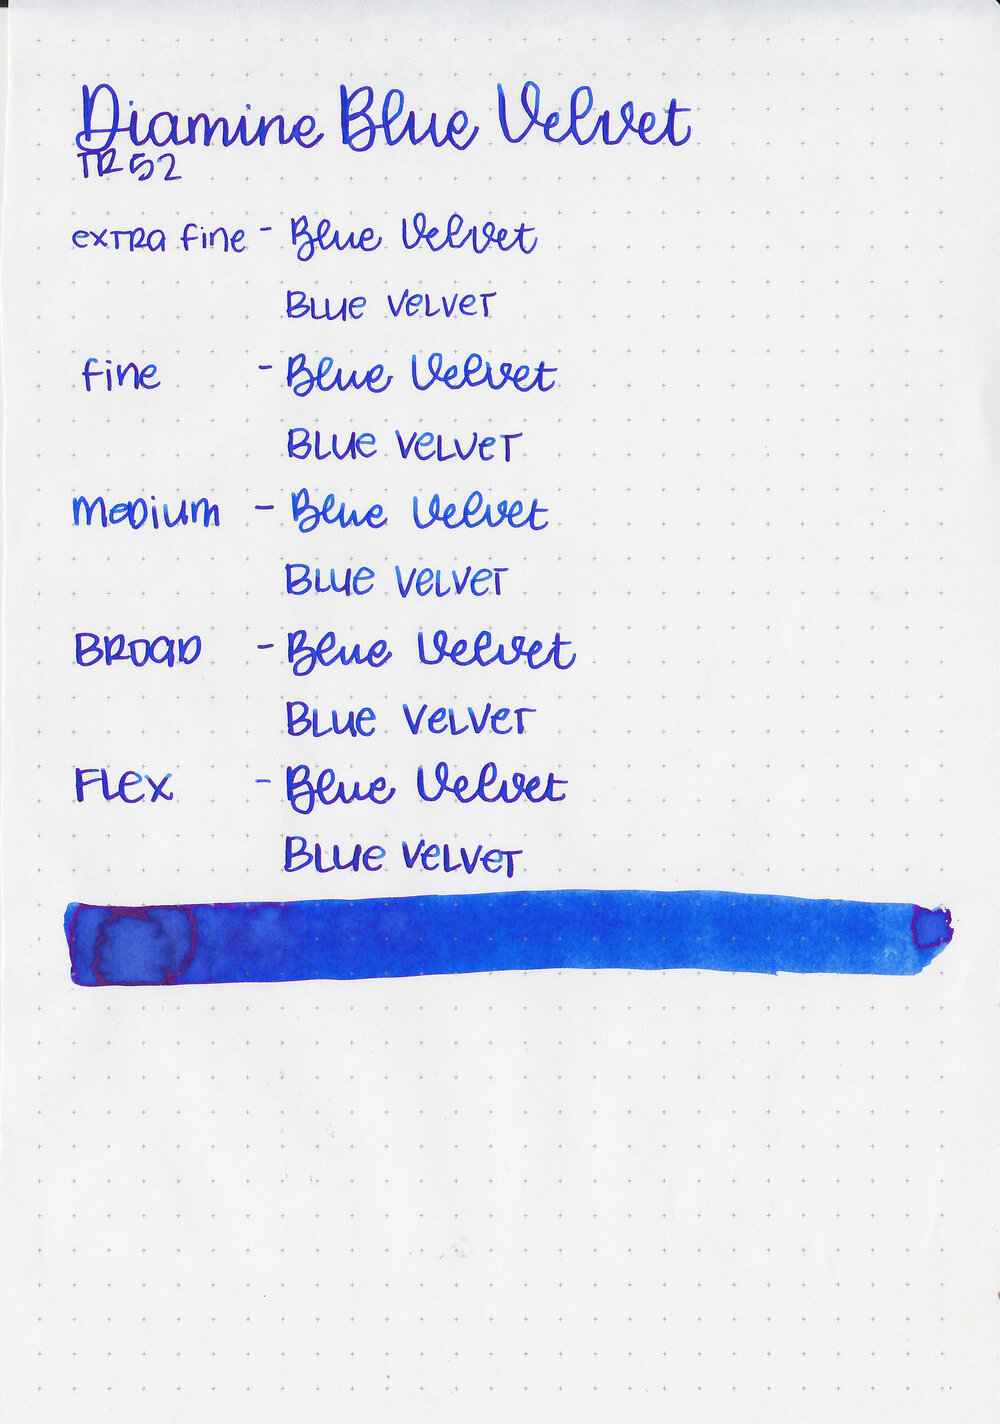 Diamine Blue Velvet
TR 52
extra fine - Blue Velvet
Blue Velvet
fine - Blue Velvet
Blue Velvet
Medium - Blue Velvet
Blue Velvet
Broad - Blue Velvet
Blue Velvet
Flex - Blue Velvet
Blue Velvet